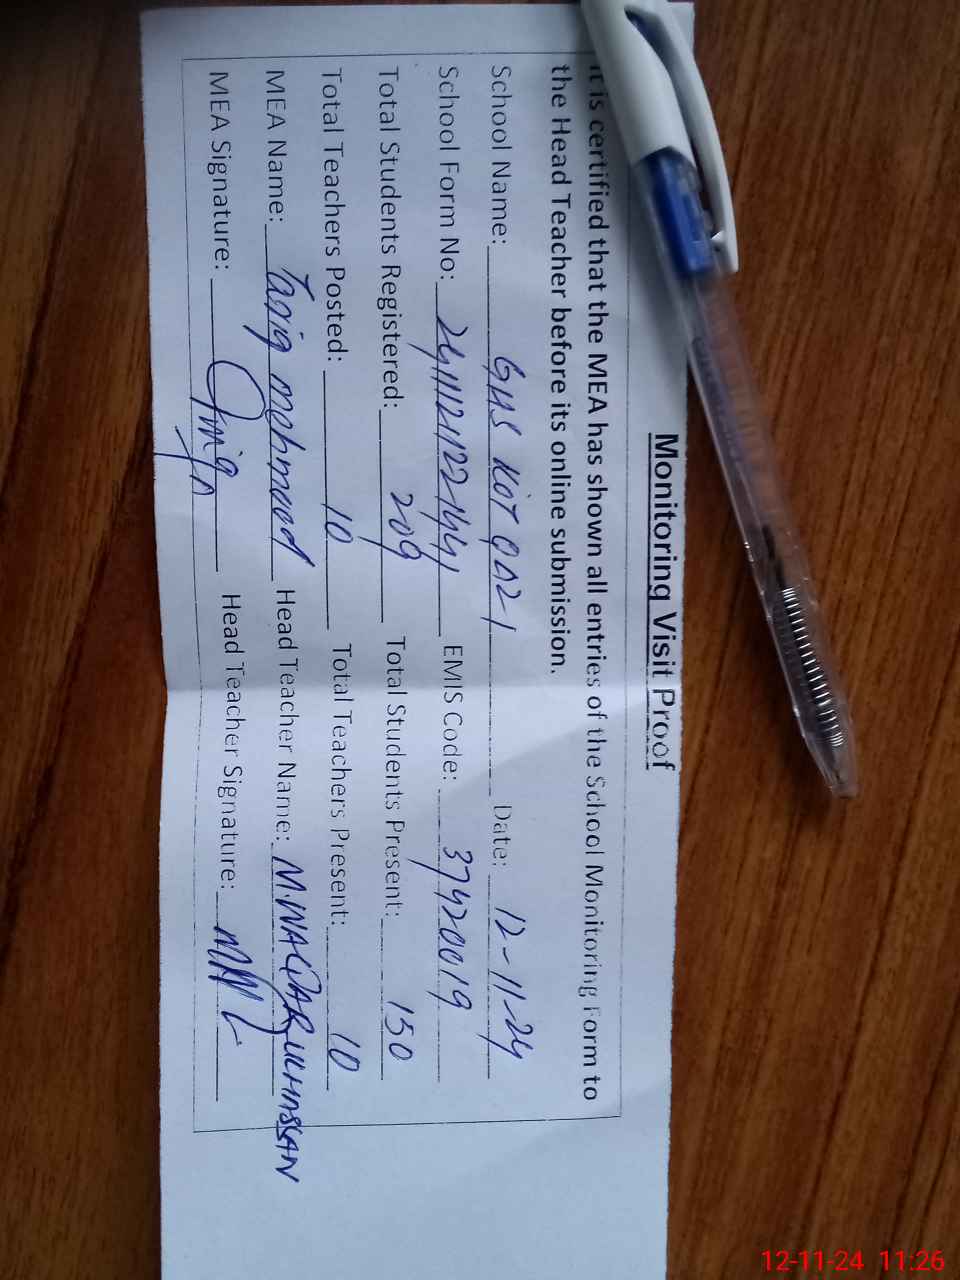 Monitoring Visit Proof
It is certified that the MEA has shown all entries of the School Monitoring Form to
the Head Teacher before its online submission.
School Name: GHS KOT QAZI Date: 12-11-24
School Form No: EMIS Code: 37420019
Total Students Registered: 209 Total Students Present: 150
Total Teachers Posted: 10 Total Teachers Present: 10
MEA Name: Tariq mehmood Head Teacher Name: M.WAQAR UL HASSAN
MEA Signature: Head Teacher Signature:
12-11-24 11:26